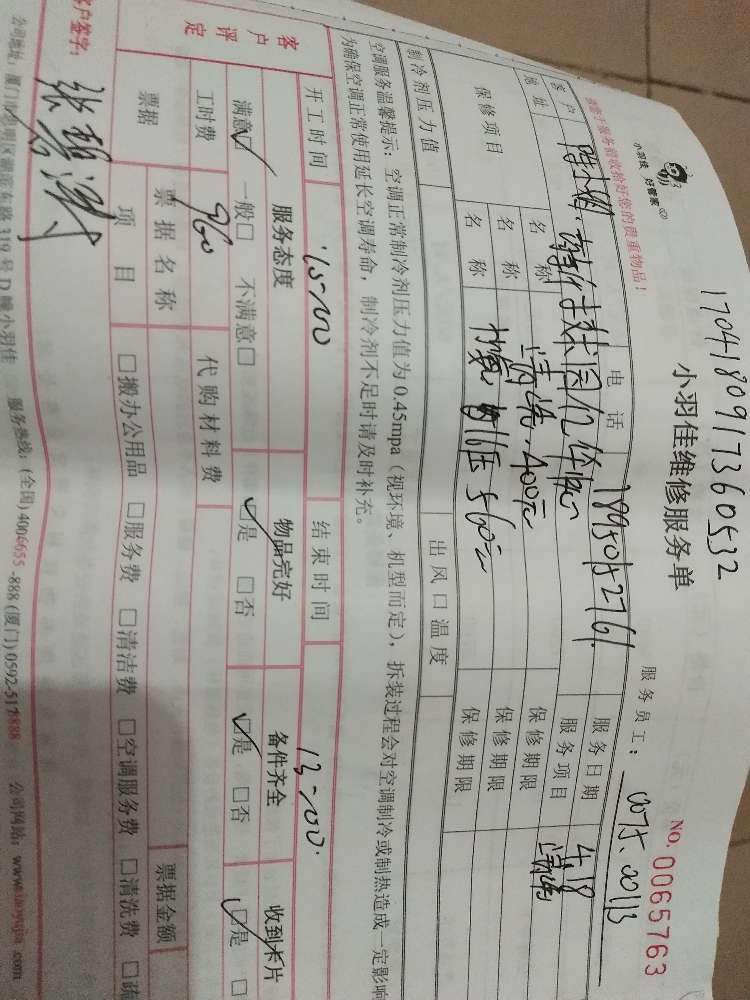 1704180917360532
小羽佳维修服务单
NO. 0065763
小羽佳 好管家
服务员工：0075.00113
请您于服务前收拾好您的贵重物品！
客户
电话 18950152761
服务日期 4.18
地址
服务项目 清洗
保修项目
名称 清洗.400元
保修期限
名称
保修期限
名称
保修期限
制冷剂压力值
出风口温度
空调服务温馨提示：空调正常制冷剂压力值为0.45mpa（视环境、机型而定），拆装过程会对空调制冷或制热造成一定影响
为确保空调正常使用延长空调寿命，制冷剂不足时请及时补充。
开工时间
结束时间 13:00
客户评定
服务态度 物品完好 备件齐全 收到卡片
满意☑ 一般□ 不满意□ ☑是 □否 ☑是 □否 ☑是 □
工时费 960 代购材料费
票据
票据名称
票据金额
项目 □搬办公用品 □服务费 □清洁费 □空调服务费 □清洗费 □疏
客户签字：
公司地址：厦门市思明区湖滨东路319号D幢小羽佳 服务热线：(全国)4006655-888 (厦门)0592-5178888 公司网站：www.xiaoyujia.com